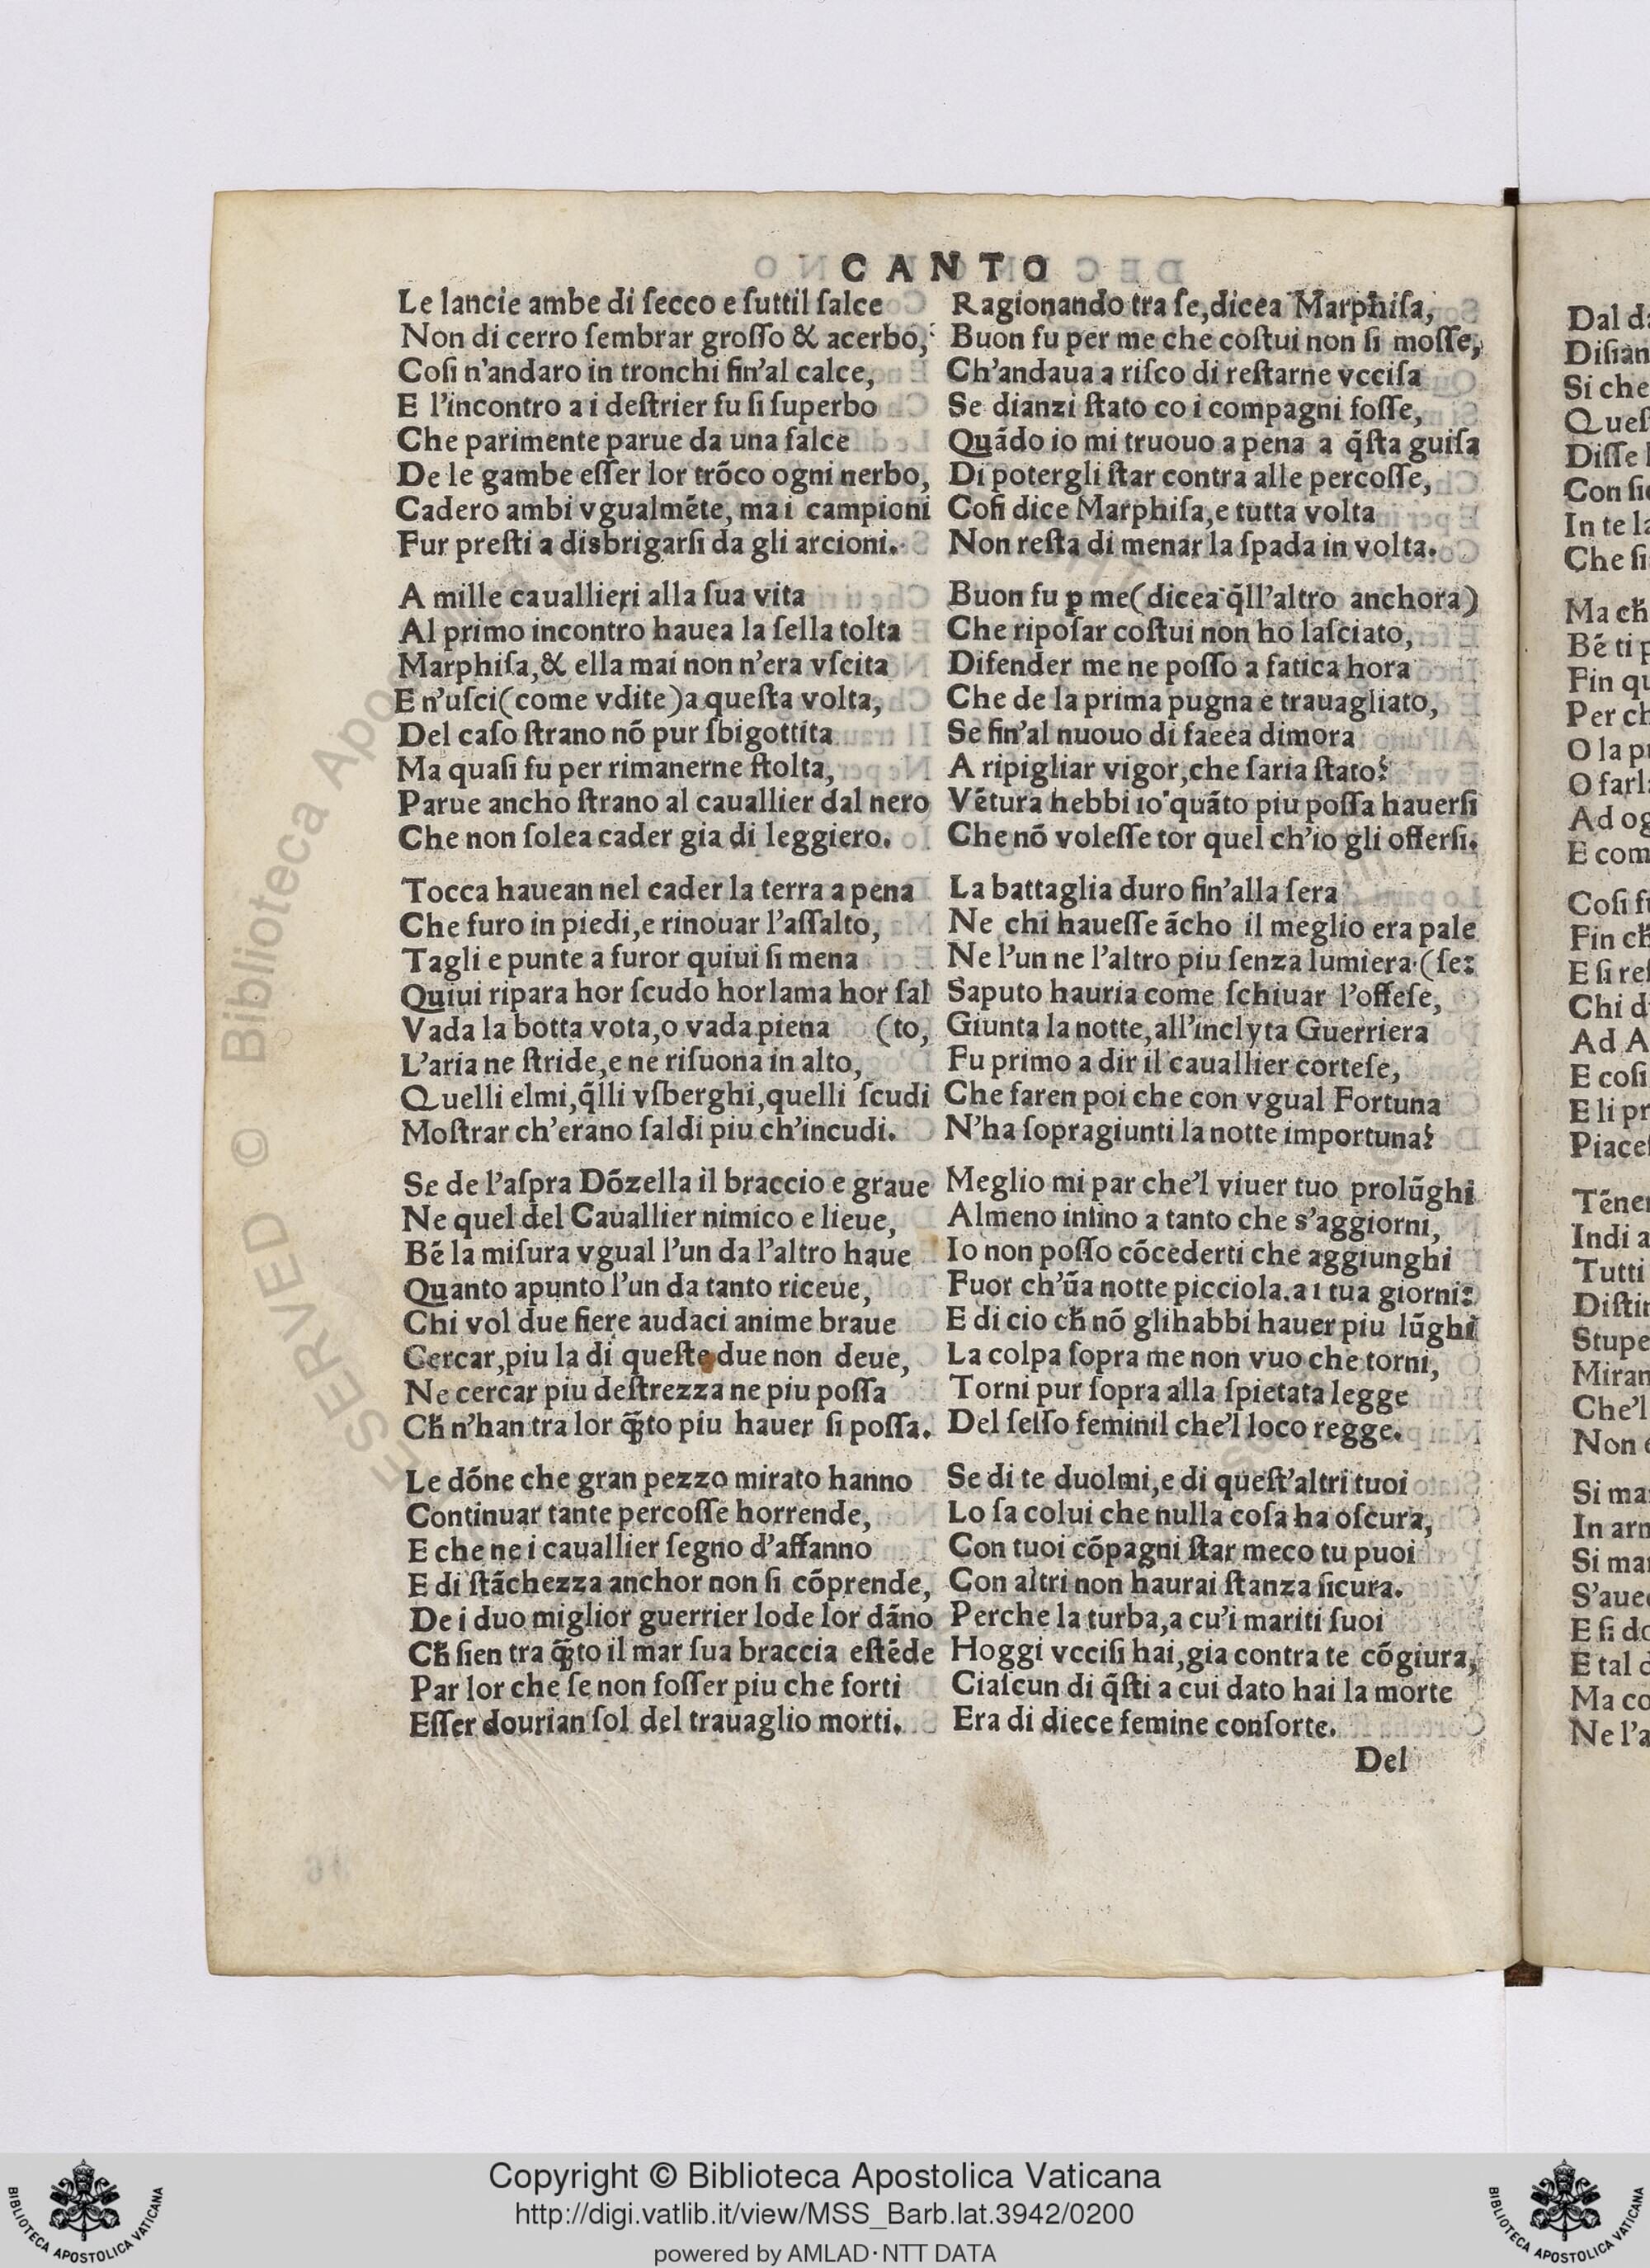 CANTO
Le lancie ambe di ſecco e ſuttil ſalce
Non di cerro ſembrar groſſo & acerbo,
Coſi n'andaro in tronchi fin'al calce,
E l'incontro a i deſtrier fu ſi ſuperbo
Che parimente parue da una falce
De le gambe eſſer lor trõco ogni nerbo,
Cadero ambi vgualmẽte, ma i campioni
Fur preſti a disbrigarſi da gli arcioni.
A mille cauallieri alla ſua vita
Al primo incontro hauea la ſella tolta
Marphiſa,& ella mai non n'era vſcita
E n'uſci(come vdite)a queſta volta,
Del caſo ſtrano nõ pur ſbigottita
Ma quaſi fu per rimanerne ſtolta,
Parue ancho ſtrano al cauallier dal nero
Che non ſolea cader gia di leggiero.
Tocca hauean nel cader la terra a pena
Che furo in piedi,e rinouar l'aſſalto,
Tagli e punte a furor quiui ſi mena
Quiui ripara hor ſcudo hor lama hor ſal
Vada la botta vota,o vada piena (to,
L'aria ne ſtride,e ne riſuona in alto,
Quelli elmi,q̃lli vſberghi,quelli ſcudi
Moſtrar ch'erano ſaldi piu ch'incudi.
Se de l'aſpra Dõzella il braccio e graue
Ne quel del Cauallier nimico e lieue,
Bẽ la miſura vgual l'un da l'altro haue
Quanto apunto l'un da tanto riceue,
Chi vol due fiere audaci anime braue
Cercar,piu la di queſte due non deue,
Ne cercar piu deſtrezza ne piu poſſa
Cħ n'han tra lor q̃to piu hauer ſi poſſa.
Le dõne che gran pezzo mirato hanno
Continuar tante percoſſe horrende,
E che ne i cauallier ſegno d'affanno
E di ſtãchezza anchor non ſi cõprende,
De i duo miglior guerrier lode lor dãno
Cħ ſien tra q̃to il mar ſua braccia eſtẽde
Par lor che ſe non foſſer piu che forti
Eſſer dourian ſol del trauaglio morti.
Ragionando tra ſe,dicea Marphiſa,
Buon fu per me che coſtui non ſi moſſe,
Ch'andaua a riſco di reſtarne vcciſa
Se dianzi ſtato co i compagni foſſe,
Quãdo io mi truouo a pena a q̃ſta guiſa
Di potergli ſtar contra alle percoſſe,
Coſi dice Marphiſa,e tutta volta
Non reſta di menar la ſpada in volta.
Buon fu ꝑ me(dicea q̃ll'altro anchora)
Che ripoſar coſtui non ho laſciato,
Difender me ne poſſo a fatica hora
Che de la prima pugna e trauagliato,
Se fin'al nuouo di facea dimora
A ripigliar vigor,che ſaria ſtato?
Vẽtura hebbi io quãto piu poſſa hauerſi
Che nõ voleſſe tor quel ch'io gli offerſi.
La battaglia duro fin'alla ſera
Ne chi haueſſe ãcho il meglio era pale
Ne l'un ne l'altro piu ſenza lumiera (ſe:
Saputo hauria come ſchiuar l'offeſe,
Giunta la notte,all'inclyta Guerriera
Fu primo a dir il cauallier corteſe,
Che faren poi che con vgual Fortuna
N'ha ſopragiunti la notte importuna?
Meglio mi par che'l viuer tuo prolũghi
Almeno inſino a tanto che s'aggiorni,
Io non poſſo cõcederti che aggiunghi
Fuor ch'ũa notte picciola.a i tua giorni:
E di cio cħ nõ glihabbi hauer piu lũghi
La colpa ſopra me non vuo che torni,
Torni pur ſopra alla ſpietata legge
Del ſeſſo feminil che'l loco regge.
Se di te duolmi,e di queſt'altri tuoi
Lo ſa colui che nulla coſa ha oſcura,
Con tuoi cõpagni ſtar meco tu puoi
Con altri non haurai ſtanza ſicura.
Perche la turba,a cu'i mariti ſuoi
Hoggi vcciſi hai,gia contra te cõgiura,
Ciaſcun di q̃ſti a cui dato hai la morte
Era di diece femine conſorte.
Del
Dal d
Diſian
Si che
Queſ
Diſſe
Con ſi
In te la
Che ſi
Ma cħ
Bẽ ti p
Fin qu
Per ch
O la p
O farl
Ad og
E com
Coſi f
Fin cħ
E ſi reſ
Chi d
Ad A
E coſi
E li pr
Piaceſ
Tẽner
Indi a
Tutti
Diſtin
Stupe
Miran
Che'l
Non
Si ma
In arm
Si ma
S'aue
E ſi do
E tal
Ma co
Ne l'a
ESERVED © Biblioteca Apo
Copyright © Biblioteca Apostolica Vaticana
http://digi.vatlib.it/view/MSS_Barb.lat.3942/0200
powered by AMLAD·NTT DATA
BIBLIOTECA APOSTOLICA VATICANA
BIBLIOTECA APOSTOLICA VATICANA